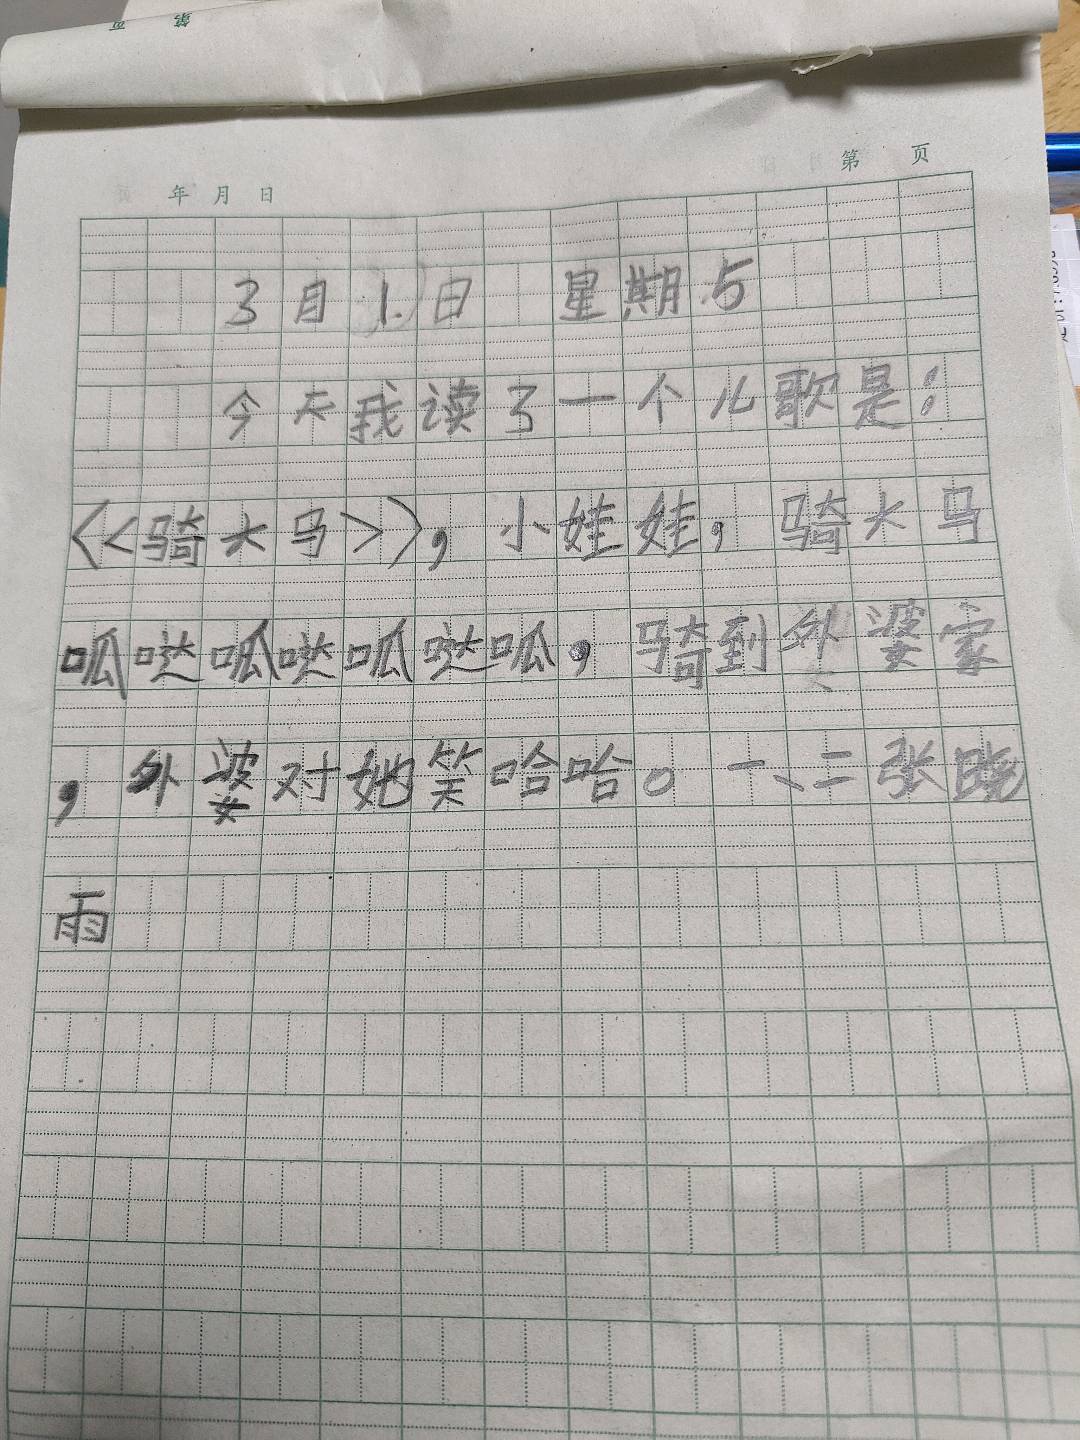 第 页
第 页
年 月 日
3月1.日 星期5
今天我读了一个儿歌是:
《<骑大马>》,小娃娃,骑大马
呱哒呱哒呱哒呱,骑到外婆家
,外婆对她笑哈哈。一、二张晓
雨